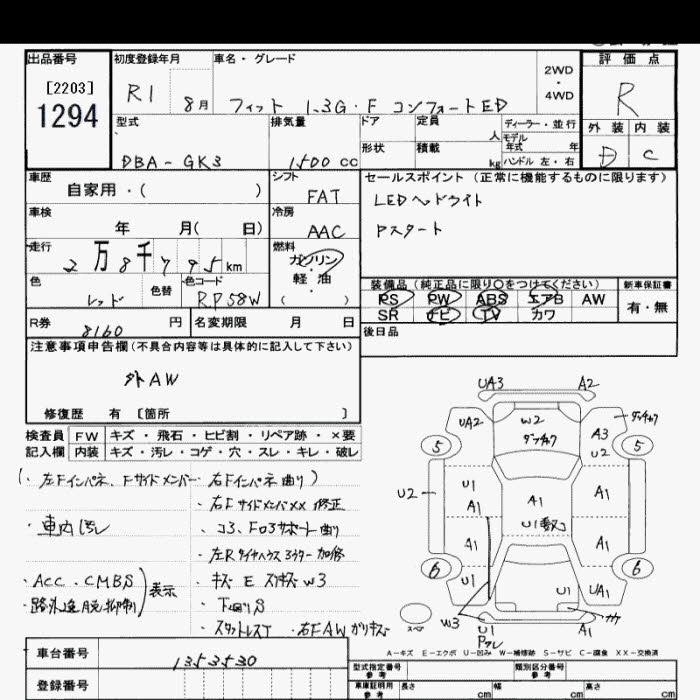 出品番号
[2203]
1294
初度登録年月
R1 8月
車名・グレード
フィット 1.3G・F コンフォートED
2WD
・
4WD
評価点
R
外装 内装
D C
型式
DBA-GK3
排気量
1500 cc
ドア
形状
定員
人
積載
kg
ディーラー・並行
モデル年式 年
ハンドル 左・右
車歴
自家用・( )
シフト
FAT
車検
年 月( 日)
冷房
AAC
走行
2万8千795km
燃料
ガソリン
・
軽油
( )
色
レッド
色替
色コード
RP58W
R券
8160 円
名変期限 月 日
セールスポイント (正常に機能するものに限ります)
LEDヘッドライト
Pスタート
装備品 (純正品に限り○をつけてください)
PS PW ABS エアB AW
SR ナビ TV カワ
新車保証書
有・無
後日品
注意事項申告欄(不具合内容等は具体的に記入して下さい)
外AW
修復歴 有 [箇所 ]
検査員 FW キズ・飛石・ヒビ割・リペア跡・×要
記入欄 内装 キズ・汚レ・コゲ・穴・スレ・キレ・破レ
(・左Fインパネ、Fサイドメンバー・右Fインパネ曲り)
・右Fサイドメンバ××修正
・車内汚レ
・コ3、Fロアサポート曲り
・左Rタイヤハウスコウター加修
・ACC・CMBS
・路外逸脱抑制
)表示
・キズ E スリキズ W3
・下回りS
・スタットレスT ・右FAWガリキズ
UA3
A2
UA2
W2
ダッチャク
ダッチャク
A3
U2
5
5
U2
U1
A1
A1
A1
U1
A1
A1
6
6
U1
U1
UA1
W3
U1
Pクレ
A1
スペア
A-キズ E-エクボ U-凹み W-補修跡 S-サビ C-腐食 XX-交換済
車台番号
1353530
登録番号
型式指定番号
参考
類別区分番号
参考
車庫証明用
参考
長さ cm
幅 cm
高さ cm